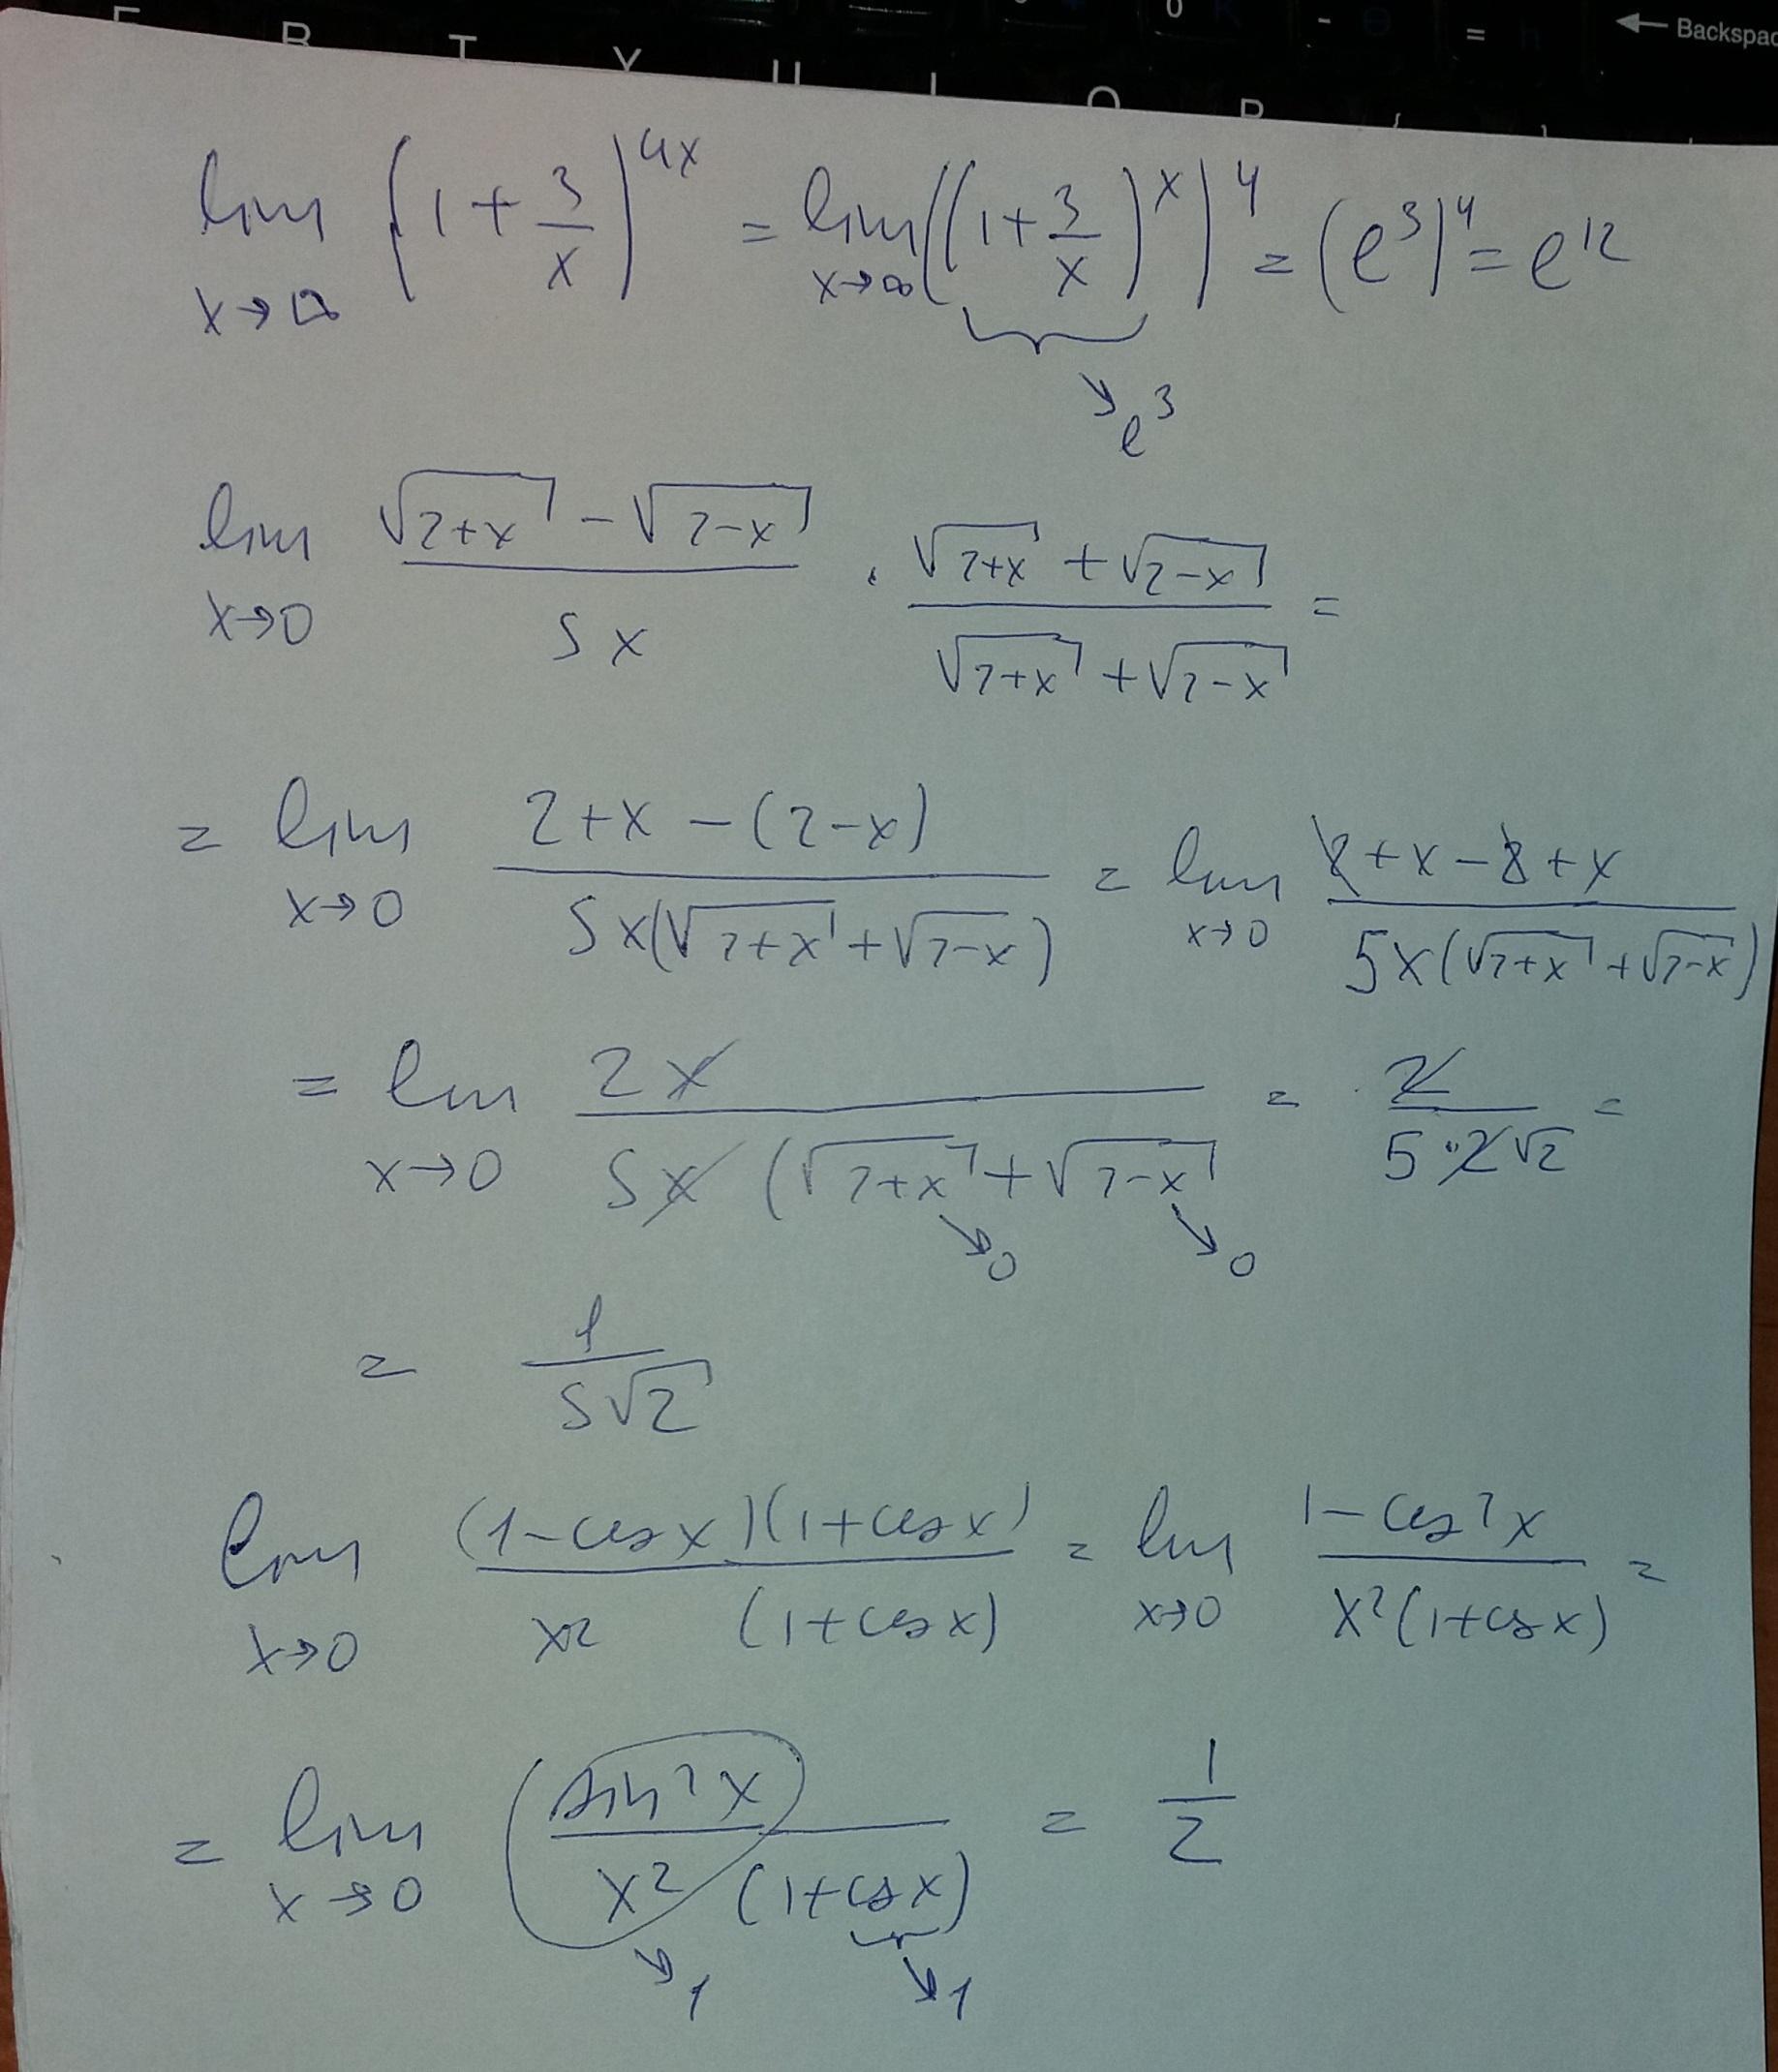 E R T Y U I O P { }
0 K - = ← Backspac
lim x→∞ (1 + 3/x)^4x = lim x→∞ ((1 + 3/x)^x)^4 = (e^3)^4 = e^12
→ e^3
lim x→0 (√(2+x) - √(2-x))/(5x) · (√(2+x) + √(2-x))/(√(2+x) + √(2-x)) =
= lim x→0 (2+x-(2-x))/(5x(√(2+x) + √(2-x))) = lim x→0 (2+x-2+x)/(5x(√(2+x) + √(2-x)))
= lim x→0 2x/(5x (√(2+x) + √(2-x) = 2/(5·2√2) =
→0 →0
= 1/(5√2)
lim x→0 ((1-cos x)(1+cos x))/(x² (1+cos x)) = lim x→0 (1-cos²x)/(x²(1+cos x)) =
= lim x→0 sin²x/(x² (1+cos x)) = 1/2
→1 →1